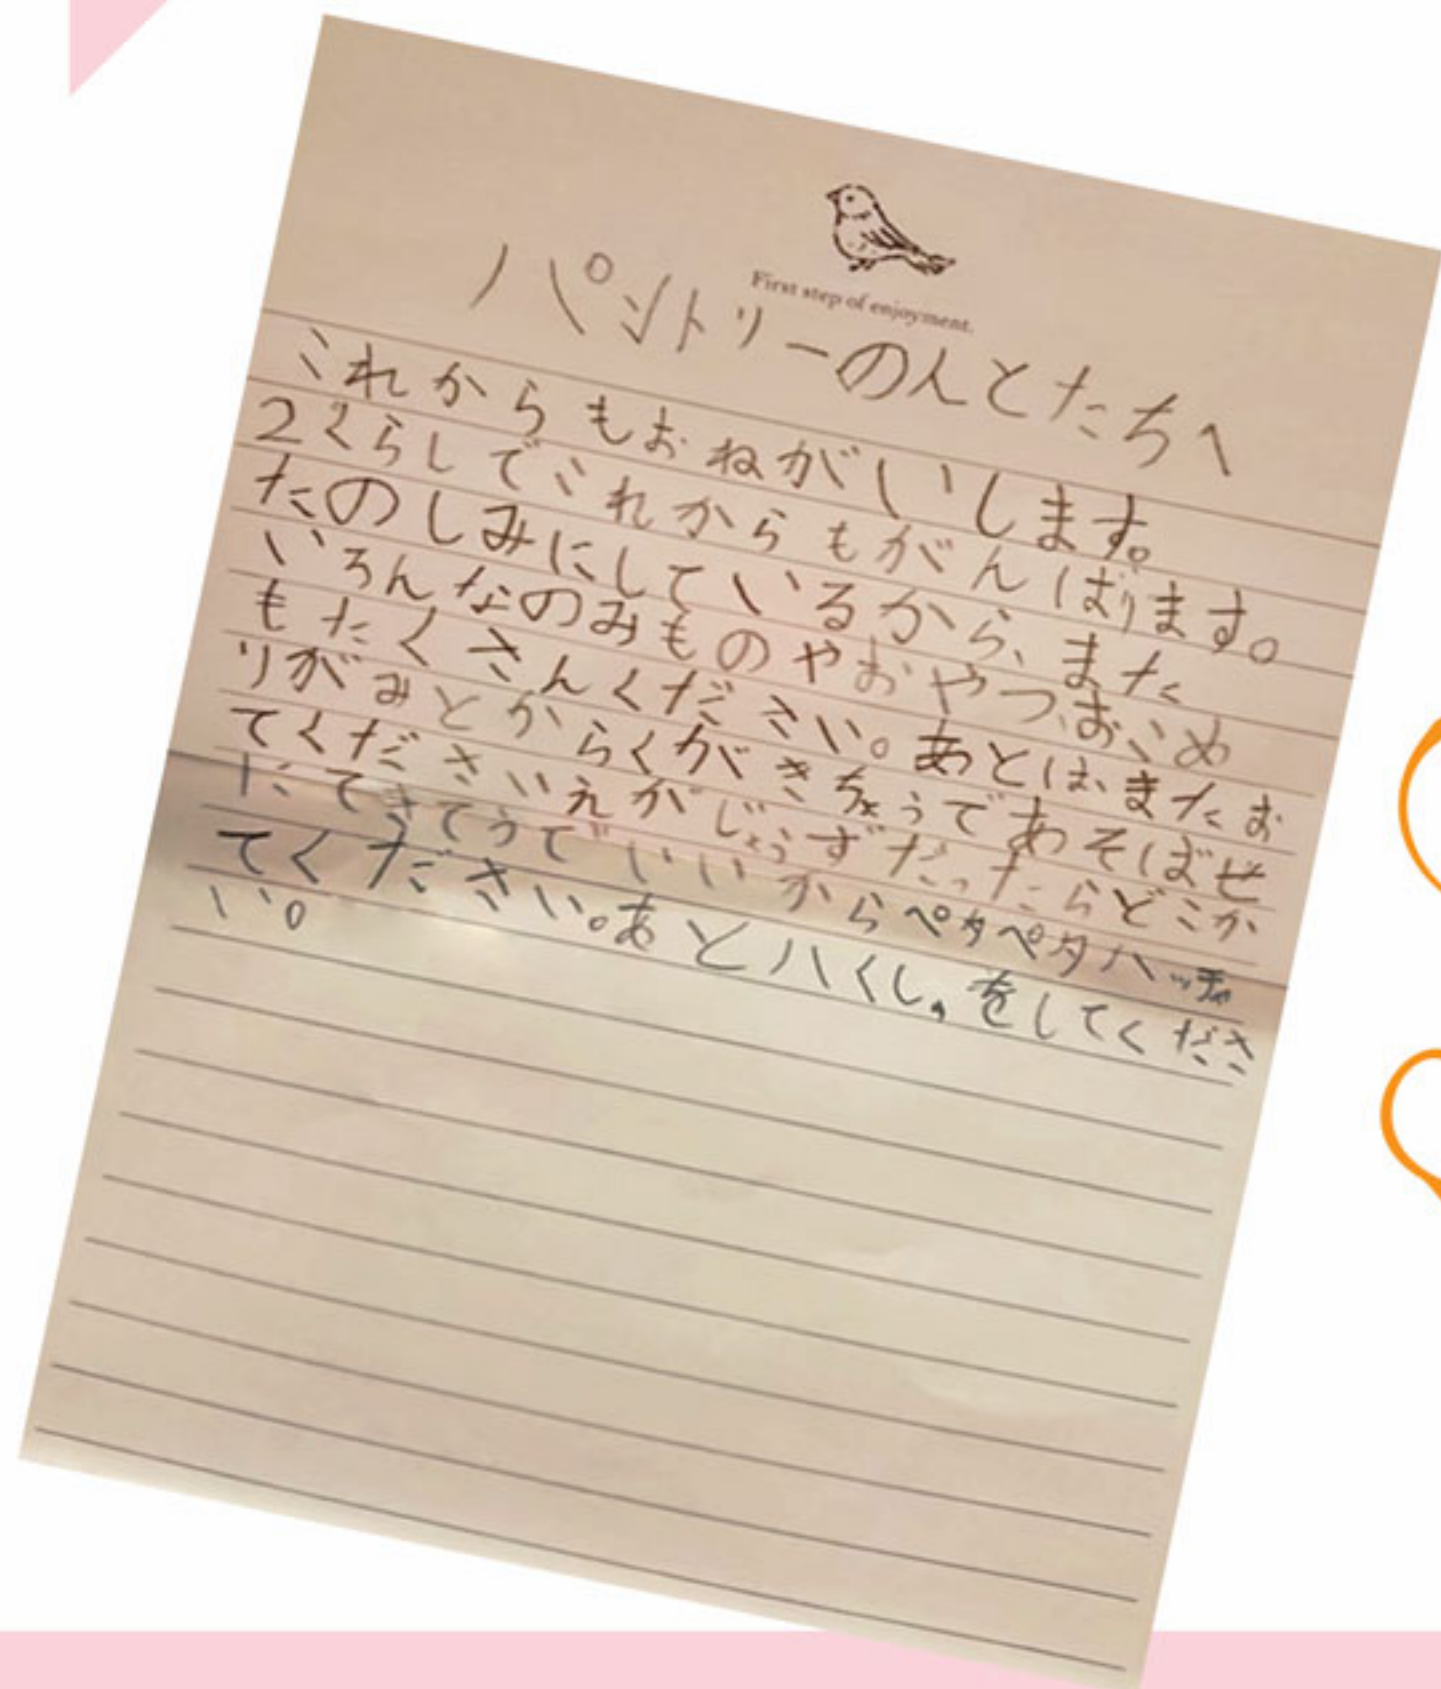 First step of enjoyment.
パントリーの人とたちへ
これからもおねがいします。
2くらしでこれからもがんばります。
たのしみにしているから、また
いろんなのみものやおやつ、おこめ
もたくさんください。あとは、またお
りがみとからくがきちょうであそばせ
てくださいえがじょうずだったらどこか
にてきてうでいいからペタペタハッチャ
てください。あとハくし、をしてくださ
い。